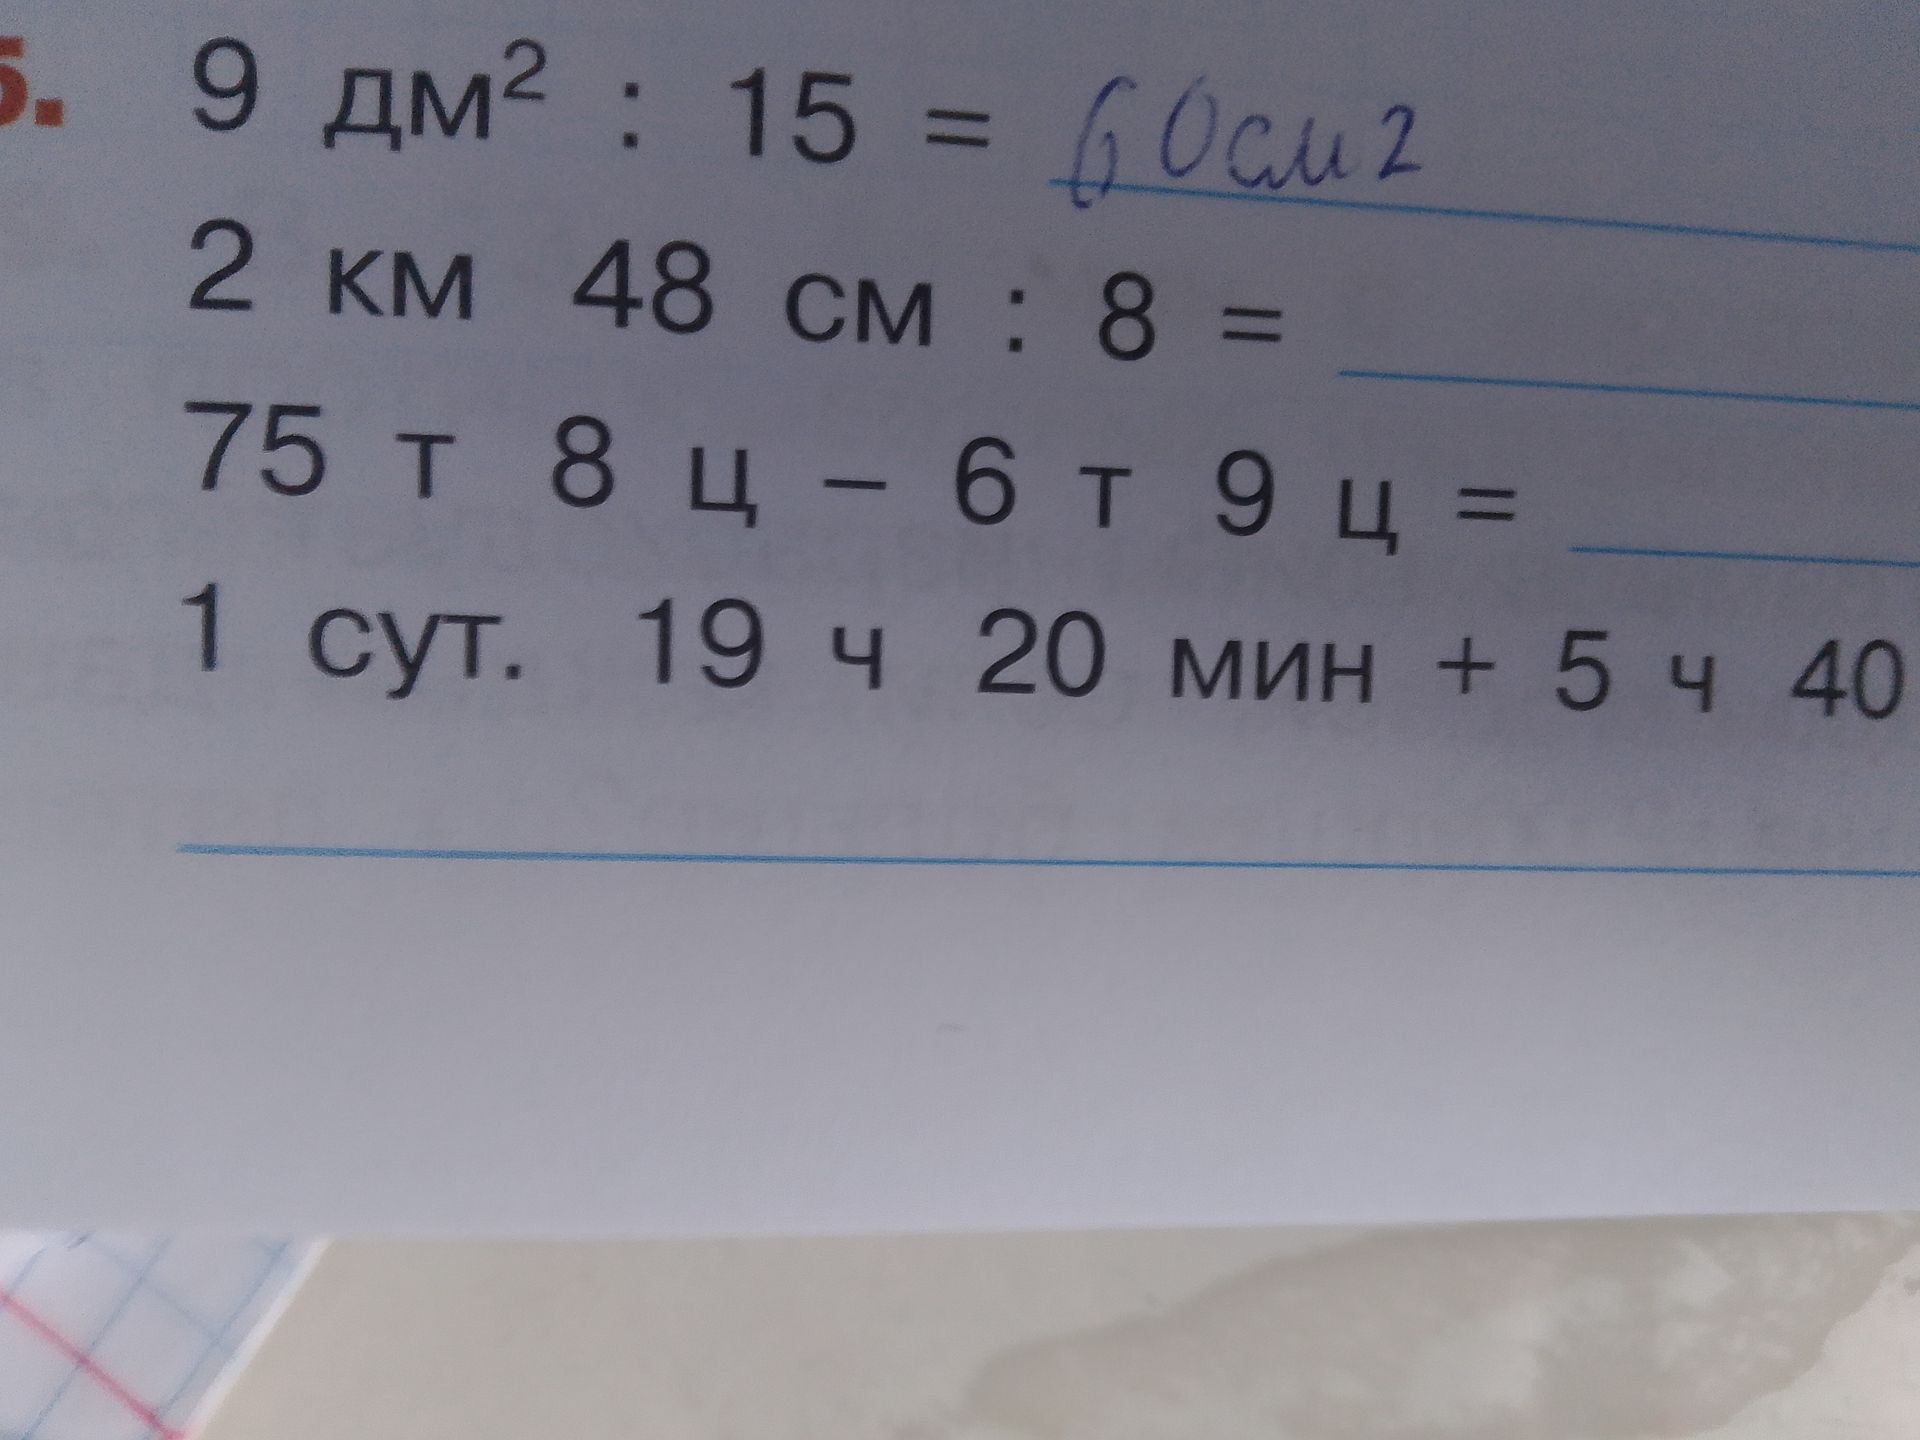 5. 9 дм² : 15 = 60см2
2 км 48 см : 8 =
75 т 8 ц – 6 т 9 ц =
1 сут. 19 ч 20 мин + 5 ч 40